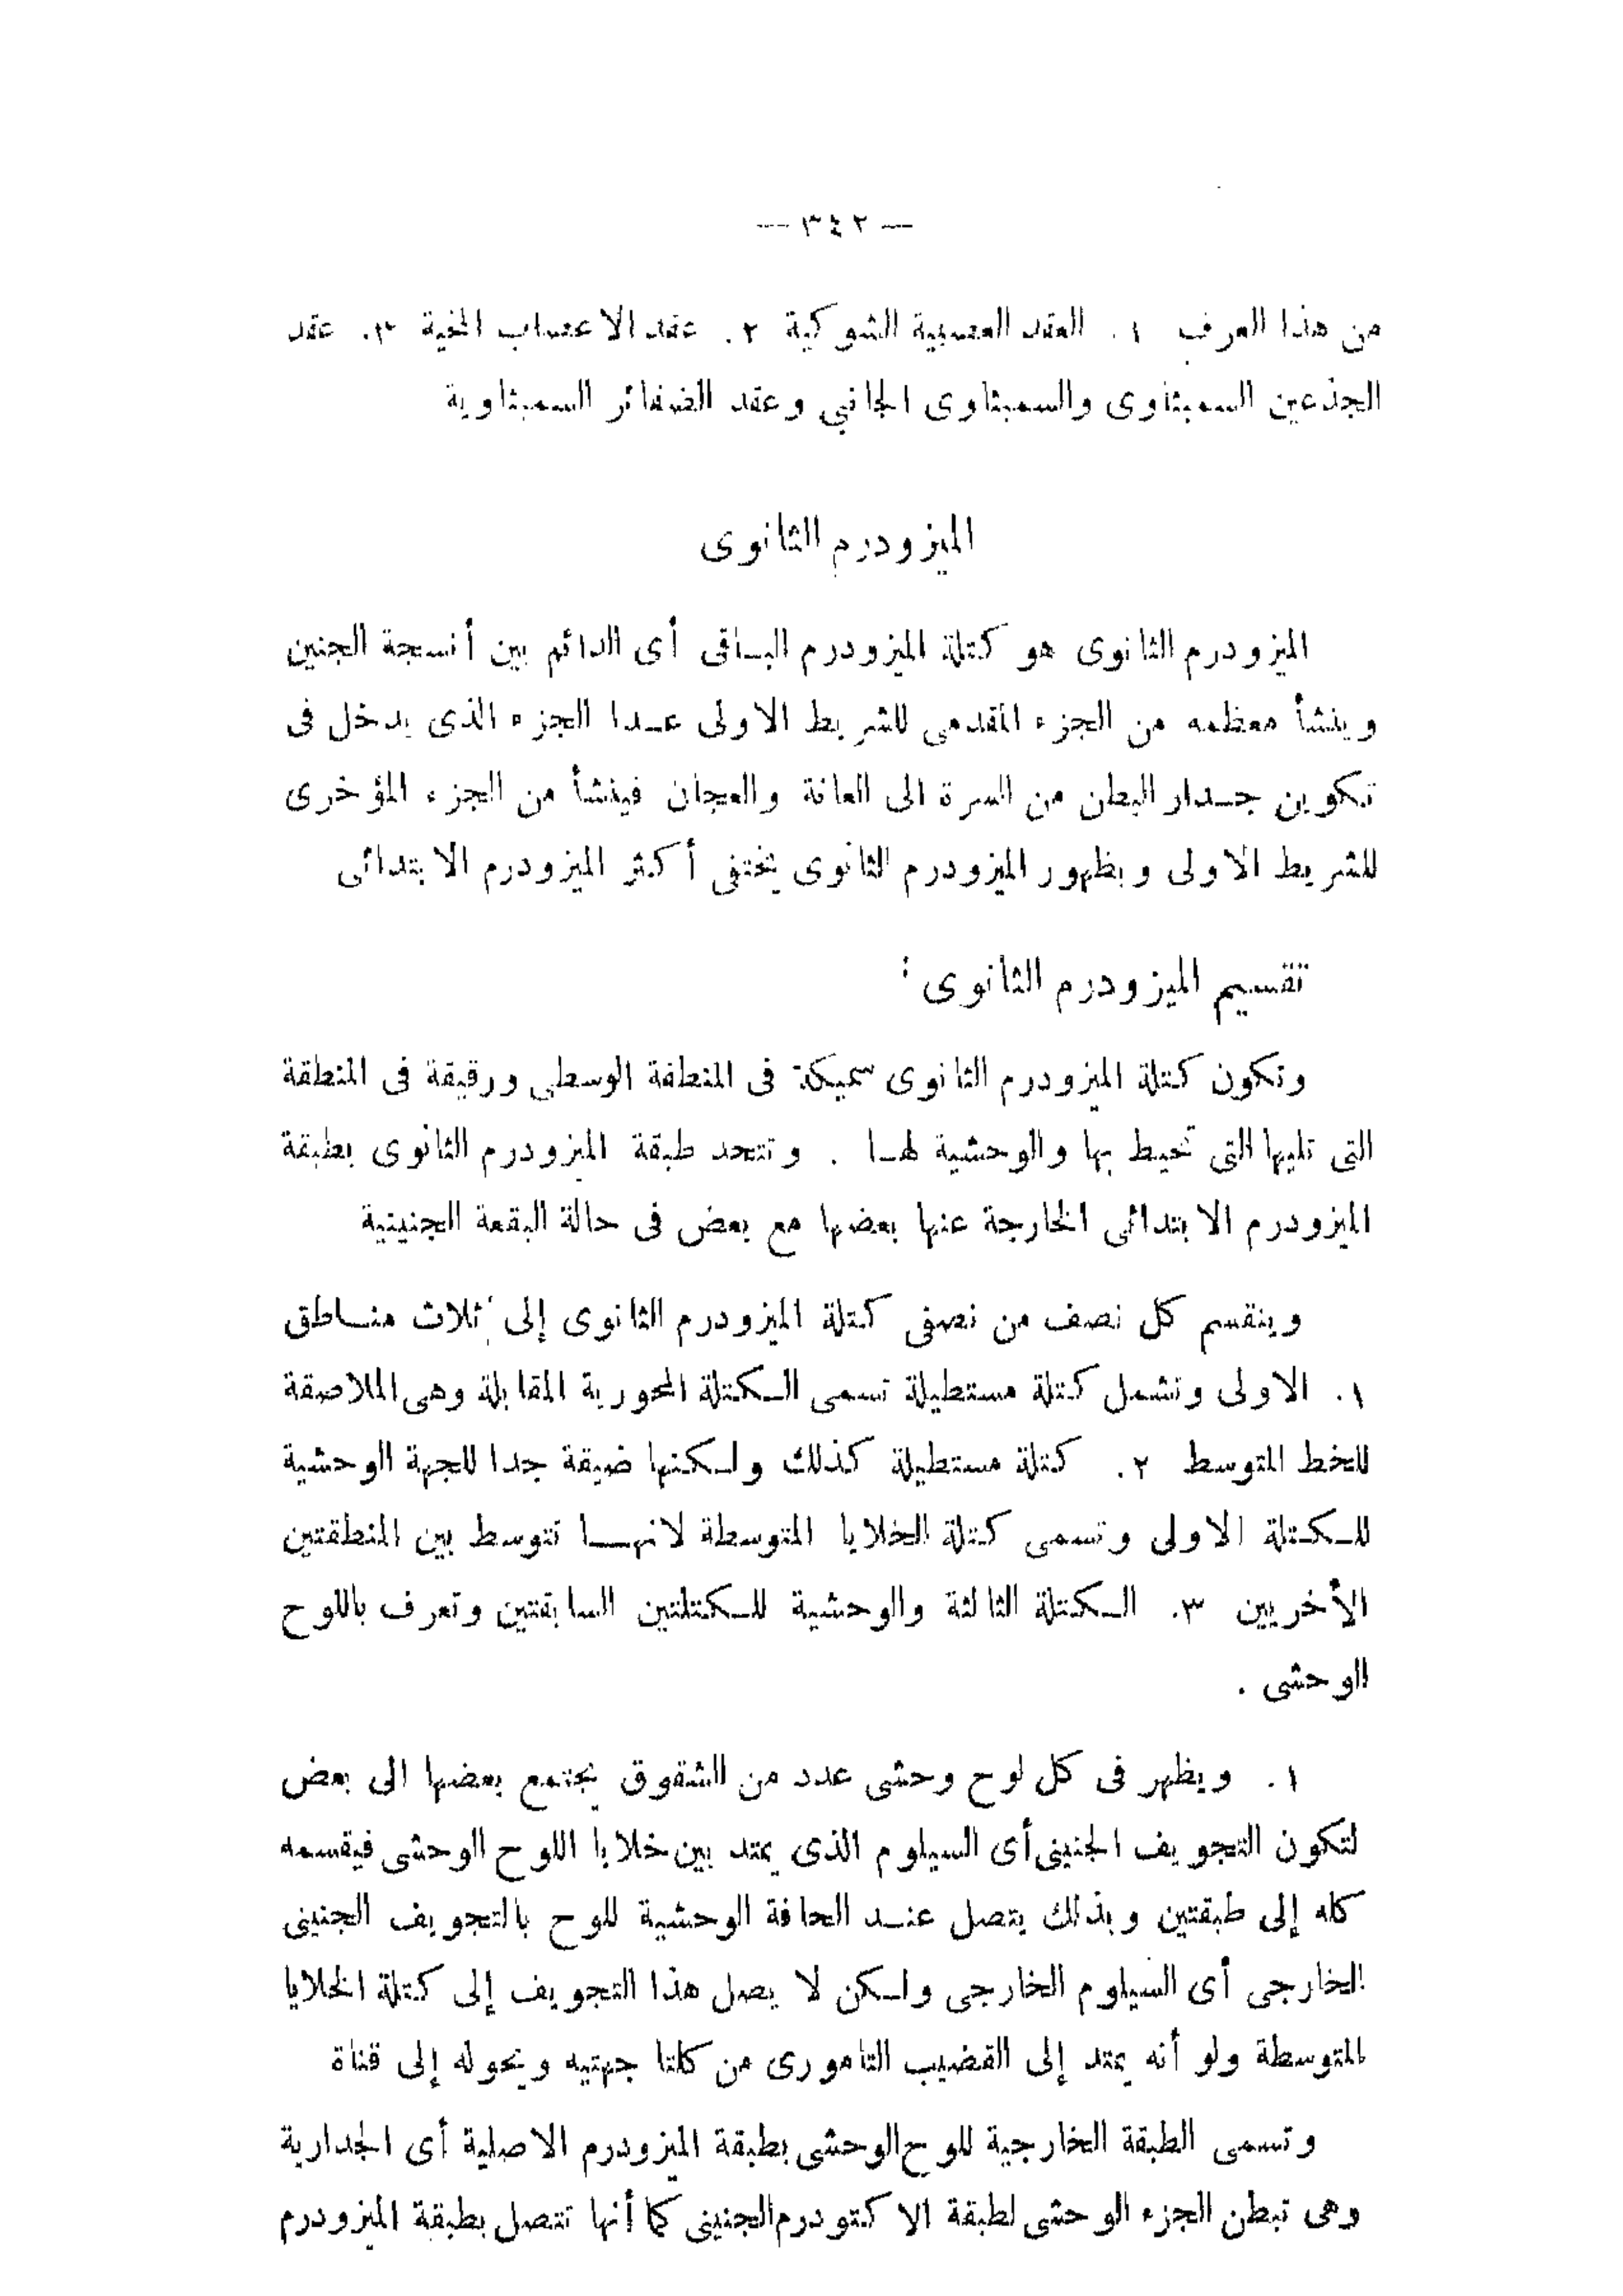 — ٣٤٢ —
من هذا العرف ١. العقد العصبية الشوكية ٢. عقد الاعصاب المخية ٣. عقد
الجذعين السمبثاوى والسمبثاوى الجانبي وعقد الضفائر السمبثاوية
الميزودرم الثانوى
الميزودرم الثانوى هو كتلة الميزودرم الباقى أى الدائم بين أنسجة الجنين
وينشأ معظمه من الجزء المقدمى للشريط الاولى عدا الجزء الذى يدخل فى
تكوين جدار البطن من السرة الى العانة والعجان فينشأ من الجزء المؤخرى
للشريط الاولى وبظهور الميزودرم الثانوى يختفى أكثر الميزودرم الابتدائى
تقسيم الميزودرم الثانوى :
وتكون كتلة الميزودرم الثانوى سميكة فى المنطقة الوسطى ورقيقة فى المنطقة
التى تليها التى تحيط بها والوحشية لها . وتتحد طبقة الميزودرم الثانوى بطبقة
الميزودرم الابتدائى الخارجة عنها بعضها مع بعض فى حالة البقعة الجنينية
وينقسم كل نصف من نصفى كتلة الميزودرم الثانوى إلى ثلاث مناطق
١. الاولى وتشمل كتلة مستطيلة تسمى الكتلة المحورية المقابلة وهى الملاصقة
للخط المتوسط ٢. كتلة مستطيلة كذلك ولكنها ضيقة جدا للجهة الوحشية
للكتلة الاولى وتسمى كتلة الخلايا المتوسطة لانها تتوسط بين المنطقتين
الأخريين ٣. الكتلة الثالثة والوحشية للكتلتين السابقتين وتعرف باللوح
الوحشى .
١. ويظهر فى كل لوح وحشى عدد من الشقوق يجتمع بعضها الى بعض
لتكون التجويف الجنينى أى السيلوم الذى يمتد بين خلايا اللوح الوحشى فيقسمه
كله إلى طبقتين وبذلك يتصل عند الحافة الوحشية للوح بالتجويف الجنينى
الخارجى أى السيلوم الخارجى ولكن لا يصل هذا التجويف إلى كتلة الخلايا
المتوسطة ولو أنه يمتد إلى القضيب التامورى من كلتا جهتيه ويحوله إلى قناة
وتسمى الطبقة الخارجية للوح الوحشى بطبقة الميزودرم الاصلية أى الجدارية
وهى تبطن الجزء الوحشى لطبقة الاكتودرم الجنينى كما أنها تتصل بطبقة الميزودرم